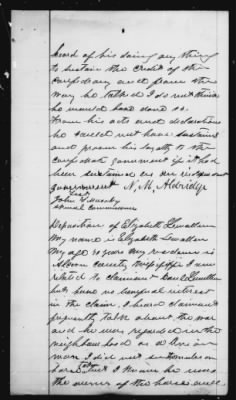 heard of his doing any thing
to sustain the credit of the
confederacy and from the
way he talked I do not think
he would have done so
From his acts and declarations
he could not have sustained
and proven his loyalty to the
confederate government if it had
been sustained as an independent
government N. M. Aldridge
Test
John
Special Commissioner
Deposition of Elizabeth Lewellen
My name is Elizabeth Lewellen
My age is years my residence is
County Mississippi I am
related to claimant Lewellen
but have no beneficial interest
in the claim. I heard claimant
frequently talk about the war
and he was regarded in the
neighborhood as a Union
man I did not see the soldiers on
horse but I know he was
the owner of the horse and